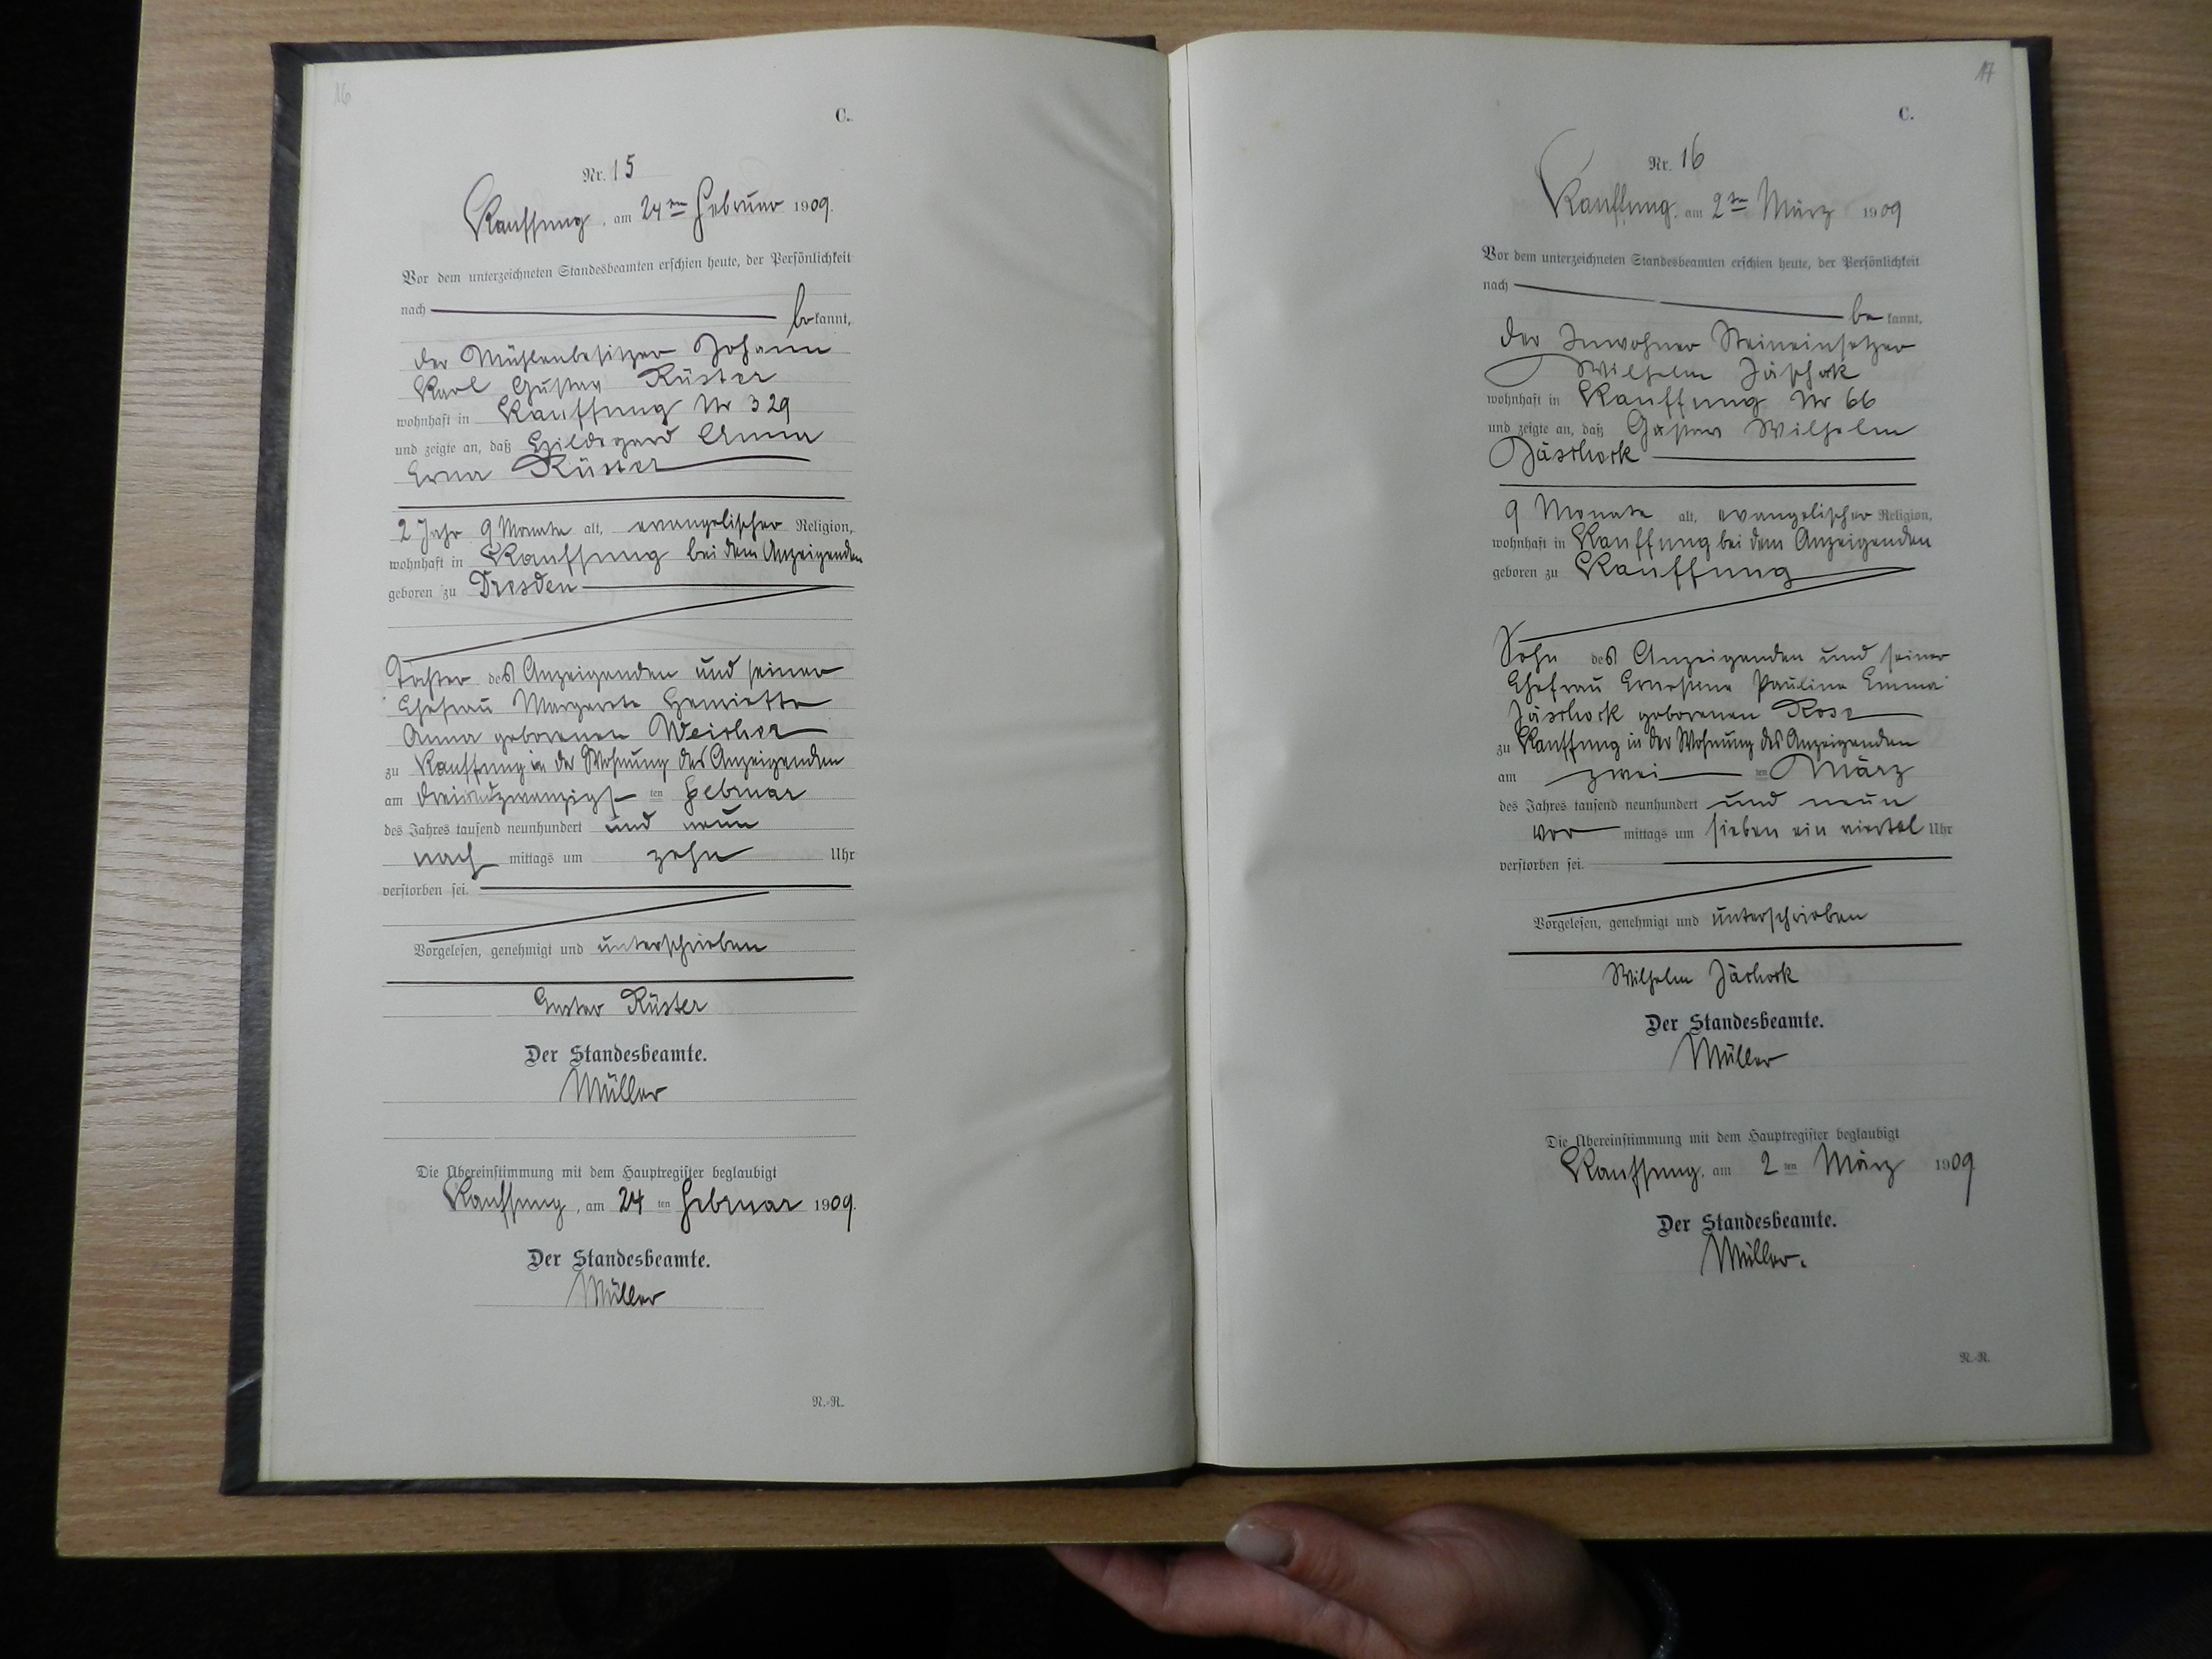 16
C.
Nr. 15
Kauffung, am 24ten Februar 1909.
Vor dem unterzeichneten Standesbeamten erschien heute, der Persönlichkeit
nach bekannt,
der Mühlenbesitzer Johann
Karl Gustav Rüster
wohnhaft in Kauffung Nr 329
und zeigte an, daß Hildegard Anna
Erna Rüster
2 Jahr 9 Monate alt, evangelischer Religion,
wohnhaft in Kauffung bei dem Anzeigenden
geboren zu Dresden
Tochter des Anzeigenden und seiner
Ehefrau Margarete Henriette
Anna geborenen Weicher
zu Kauffung in der Wohnung des Anzeigenden
am dreiundzwanzigsten Februar
des Jahres tausend neunhundert und neun
nachmittags um zehn Uhr
verstorben sei.
Vorgelesen, genehmigt und unterschrieben
Gustav Rüster
Der Standesbeamte.
Müller
Die Übereinstimmung mit dem Hauptregister beglaubigt
Kauffung, am 24ten Februar 1909.
Der Standesbeamte.
Müller
N.-R.
17
C.
Nr. 16
Kauffung, am 2ten März 1909
Vor dem unterzeichneten Standesbeamten erschien heute, der Persönlichkeit
nach bekannt,
der Inwohner Steineinsetzer
Wilhelm Jäschok
wohnhaft in Kauffung Nr 66
und zeigte an, daß Gustav Wilhelm
Jäschock
9 Monate alt, evangelischer Religion,
wohnhaft in Kauffung bei dem Anzeigenden
geboren zu Kauffung
Sohn des Anzeigenden und seiner
Ehefrau Ernestine Pauline Emma
Jäschock geborenen Rose
zu Kauffung in der Wohnung des Anzeigenden
am zweiten März
des Jahres tausend neunhundert und neun
vormittags um sieben ein viertel Uhr
verstorben sei.
Vorgelesen, genehmigt und unterschrieben
Wilhelm Jäschock
Der Standesbeamte.
Müller
Die Übereinstimmung mit dem Hauptregister beglaubigt
Kauffung, am 2ten März 1909
Der Standesbeamte.
Müller.
N.-R.